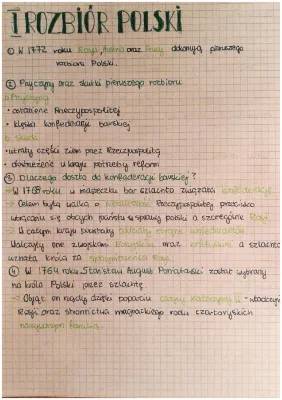 I ROZBIÓR POLSKI
① W 1772 roku Rosja, Austria oraz Prusy dokonują pierwszego
rozbioru Polski.
② Przyczyny oraz skutki pierwszego rozbioru
a) Przyczyny
• osłabienie Rzeczypospolitej
• klęska konfederacji barskiej
b) Skutki
• utraty części ziem przez Rzeczpospolitą
• dostrzeżenie w kraju potrzeby reform
③ Dlaczego doszło do konfederacji barskiej?
→ W 1768 roku w miasteczku bar szlachta zawiązała konfederację
→ Celem była walka o niezależność Rzeczypospolitej, przeciwko
wtrącaniu się obcych państw w sprawy polski a szczególnie Rosji
→ W całym kraju powstały oddziały zbrojne konfederatów
Walczyły one z wojskami Rosyjskimi oraz królewskimi a szlachta
uznała króla za sprzymierzeńca Rosji.
④ W 1764 roku Stanisław August Poniatowski został wybrany
na króla Polski przez szlachtę
→ Objął on rządy dzięki poparciu carycy Katarzyny II - władczyni
Rosji oraz stronnictwa magnackiego rodu czartoryskich
nazywanym Familią.